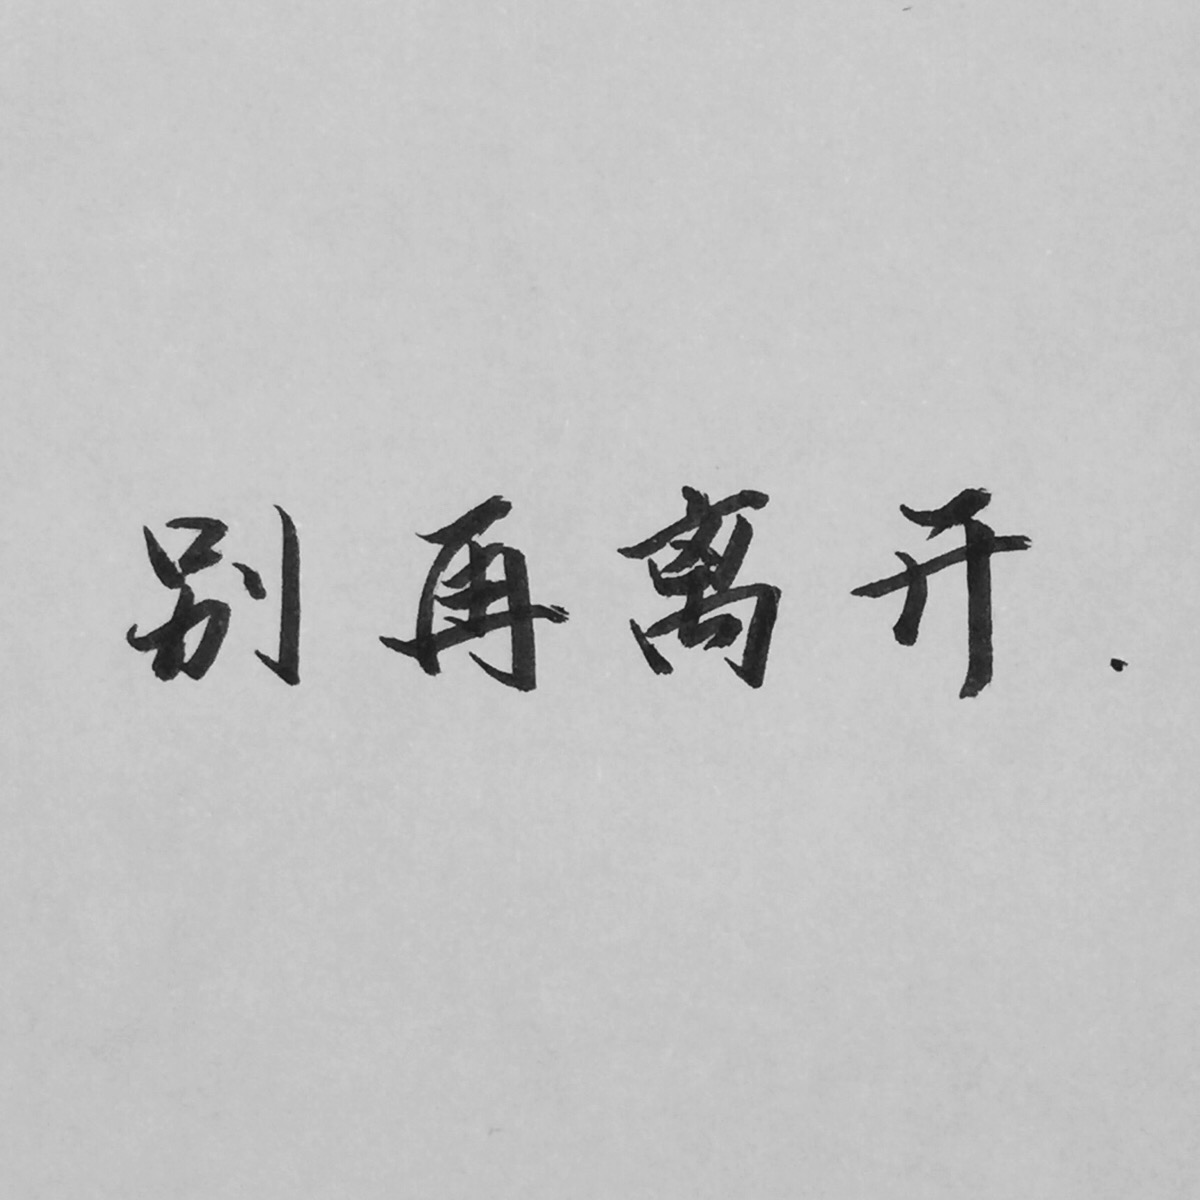 别再离开.